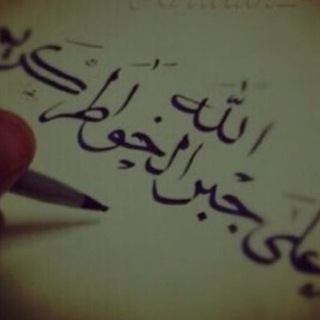 الله
على جبر الخواطر كريم